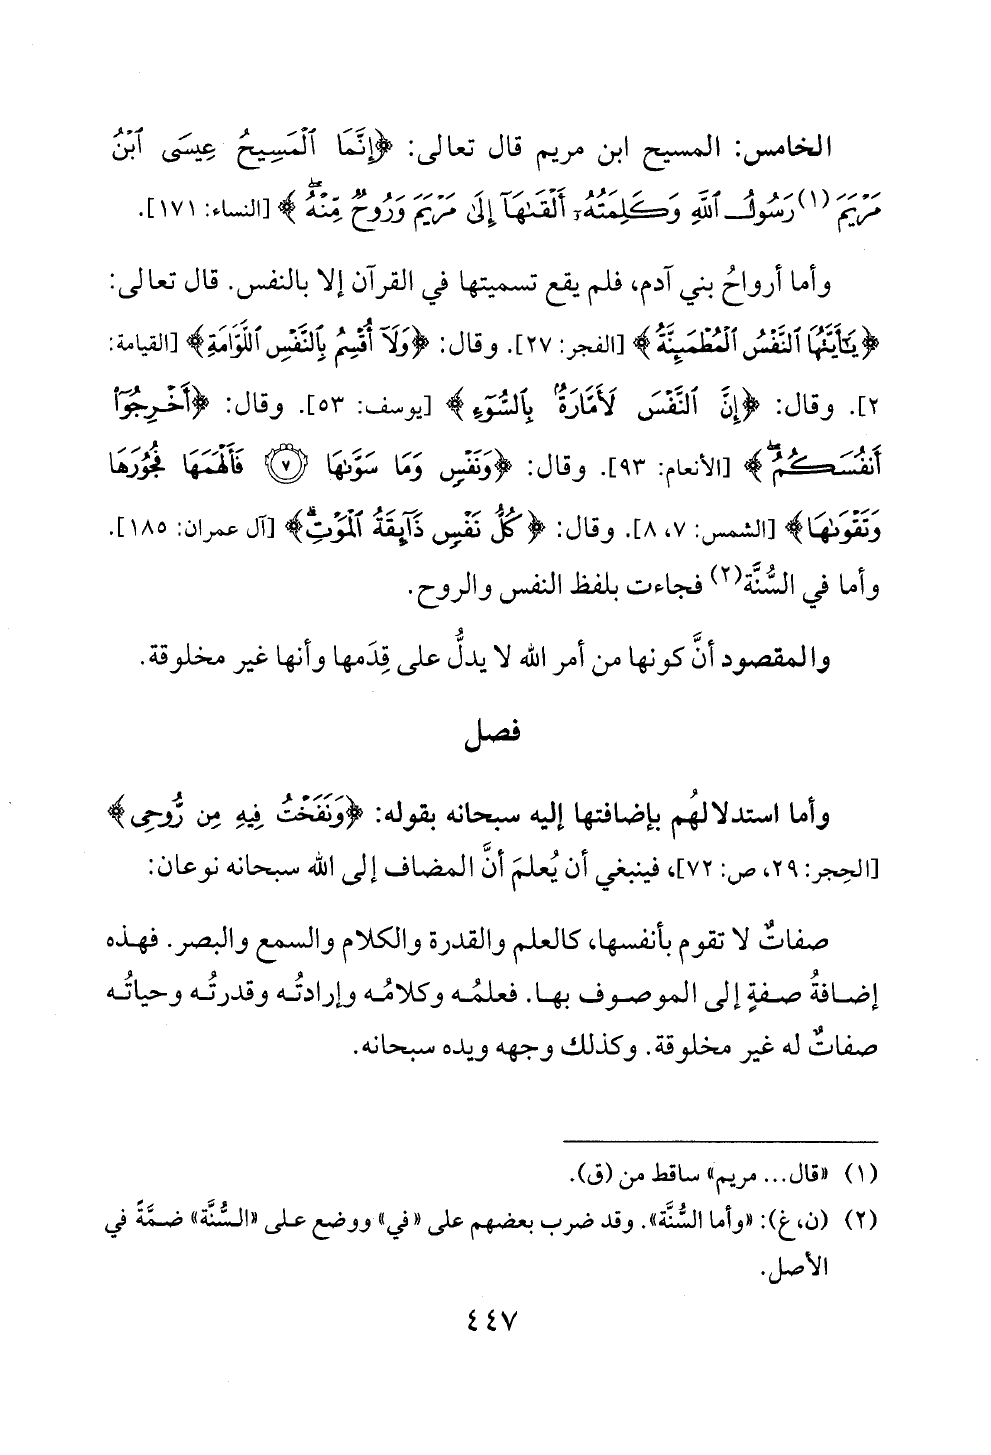 الخامس: المسيح ابن مريم قال تعالى: ﴿إِنَّمَا ٱلْمَسِيحُ عِيسَى ٱبْنُ
مَرْيَمَ (١) رَسُولُ ٱللَّهِ وَكَلِمَتُهُۥٓ أَلْقَىٰهَآ إِلَىٰ مَرْيَمَ وَرُوحٌ مِّنْهُ ۖ﴾ [النساء: ١٧١].
وأما أرواحُ بني آدم، فلم يقع تسميتها في القرآن إلا بالنفس. قال تعالى:
﴿يَـٰٓأَيَّتُهَا ٱلنَّفْسُ ٱلْمُطْمَئِنَّةُ﴾ [الفجر: ٢٧]. وقال: ﴿وَلَآ أُقْسِمُ بِٱلنَّفْسِ ٱللَّوَّامَةِ﴾ [القيامة:
٢]. وقال: ﴿إِنَّ ٱلنَّفْسَ لَأَمَّارَةٌۢ بِٱلسُّوٓءِ﴾ [يوسف: ٥٣]. وقال: ﴿أَخْرِجُوٓا۟
أَنفُسَكُمُ ۖ﴾ [الأنعام: ٩٣]. وقال: ﴿وَنَفْسٍ وَمَا سَوَّىٰهَا ٧ فَأَلْهَمَهَا فُجُورَهَا
وَتَقْوَىٰهَا﴾ [الشمس: ٧، ٨]. وقال: ﴿كُلُّ نَفْسٍ ذَآئِقَةُ ٱلْمَوْتِ ۗ﴾ [آل عمران: ١٨٥].
وأما في السُّنَّة(٢) فجاءت بلفظ النفس والروح.
والمقصود أنَّ كونها من أمر الله لا يدلُّ على قِدَمها وأنها غير مخلوقة.
فصل
وأما استدلالهُم بإضافتها إليه سبحانه بقوله: ﴿وَنَفَخْتُ فِيهِ مِن رُّوحِى﴾
[الحِجر: ٢٩، ص: ٧٢]، فينبغي أن يُعلمَ أنَّ المضاف إلى الله سبحانه نوعان:
صفاتٌ لا تقوم بأنفسها، كالعلم والقدرة والكلام والسمع والبصر. فهذه
إضافةُ صفةٍ إلى الموصوف بها. فعلمُه وكلامُه وإرادتُه وقدرتُه وحياتُه
صفاتٌ له غير مخلوقة. وكذلك وجهه ويده سبحانه.
(١) «قال... مريم» ساقط من (ق).
(٢) (ن، غ): «وأما السُّنَّة». وقد ضرب بعضهم على «في» ووضع على «السُّنَّة» ضمَّةً في
الأصل.
٤٤٧